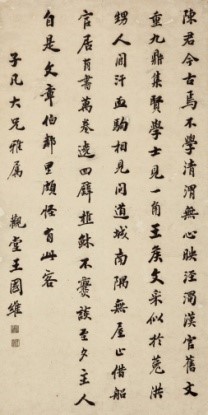 陳君今古焉不學清渭無心映涇濁漢官舊文
重九鼎集賢學士見一角王侯文采似於菟洪
甥人間汗血駒相見問道城南隅無屋止借船
官居有書萬卷遶四壁樵穌不爨談至夕主人
自是文章伯鄰里頗怪有此客
子凡大兄雅屬
觀堂王國維